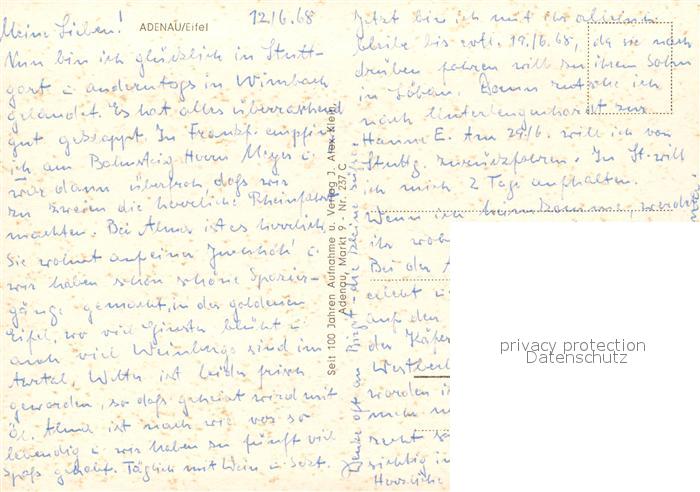 ADENAU/Eifel
12/6.68
Meine Lieben!
Nun bin ich glücklich in Stutt-
gart u anderntags in Wimbach
gelandet. Es hat alles überraschend
gut geklappt. In Frankf. empfing
ich am Bahnsteig Herrn Meyer u
war dann überfroh, daß wir
zu zweien die herrliche Rheinfahrt
machten. Bei Alma ist es herrlich
Sie wohnt auf einer Hochhöh! u
wir haben schon schöne Spazier-
gänge gemacht, in der goldenen
Eifel, wo viel Ginster blüht u
auch viel Weinberge sind im
Ahrtal. Wetter ist leider frisch
geworden, so daß geheizt wird mit
Öl. Alma ist nach wie vor so
lebendig u wir haben zu fünft viel
Spaß gehabt. Täglich mit Wein u Sekt.
Seit 100 Jahren Aufnahme u. Verlag J. Alex Klein,
Adenau, Markt 9 · Nr. 237 C
Denke oft an Birgit - die kleine süße
Jetzt bin ich mit ihr allein u
bleibe bis evtl. 19./6.68, da sie nach
drüben fahren will zu ihrem Sohn
in Löbau. Dann rutsche ich
nach Unterlengenhardt zur
Hanne E. Am 29/6. will ich von
Stuttg. zurückfahren. In St. will
ich mich 2 Tage aufhalten.
Wenn ich heimkomme, werdet
ihr woh
Bei der A
erlebt u
auf den
der Käfer
Westberl
worden i
mehr n
recht s
sichtig in
Herzliche
privacy protection
Datenschutz